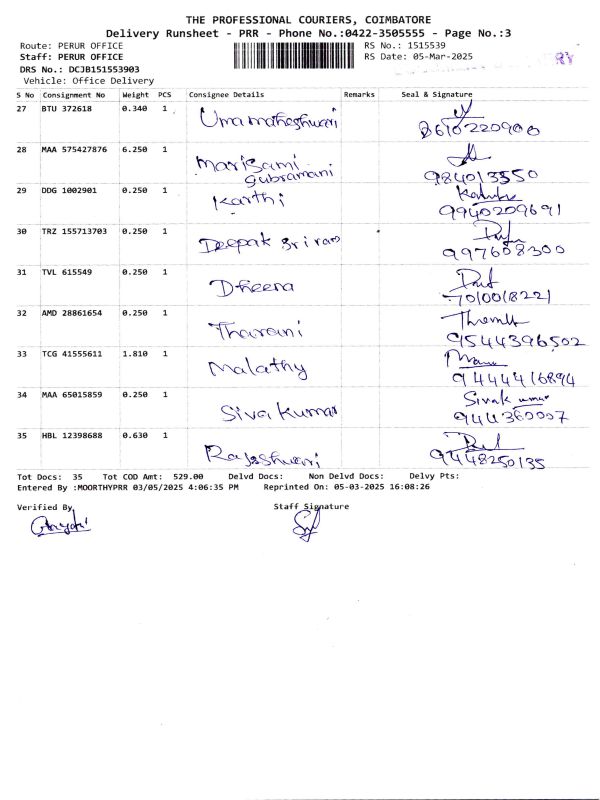 THE PROFESSIONAL COURIERS, COIMBATORE
Delivery Runsheet - PRR - Phone No.:0422-3505555 - Page No.:3
Route: PERUR OFFICE RS No.: 1515539
Staff: PERUR OFFICE RS Date: 05-Mar-2025
DRS No.: DCJB151553903
Vehicle: Office Delivery
S No Consignment No Weight PCS Consignee Details Remarks Seal & Signature
27 BTU 372618 0.340 1 Umamaheshwari
8610220900
28 MAA 575427876 6.250 1 Marisami
Subramani
984013550
29 DDG 1002901 0.250 1 Karthi
9940209691
30 TRZ 155713703 0.250 1 Deepak Sriram
997608300
31 TVL 615549 0.250 1 Dheena
7010018221
32 AMD 28861654 0.250 1 Tharani
9544396502
33 TCG 41555611 1.810 1 Malathy
9444416894
34 MAA 65015859 0.250 1 Siva Kumar Sivakumar
944360007
35 HBL 12398688 0.630 1 Rajeshwari
9448250135
Tot Docs: 35 Tot COD Amt: 529.00 Delvd Docs: Non Delvd Docs: Delvy Pts:
Entered By :MOORTHYPRR 03/05/2025 4:06:35 PM Reprinted On: 05-03-2025 16:08:26
Verified By Staff Signature